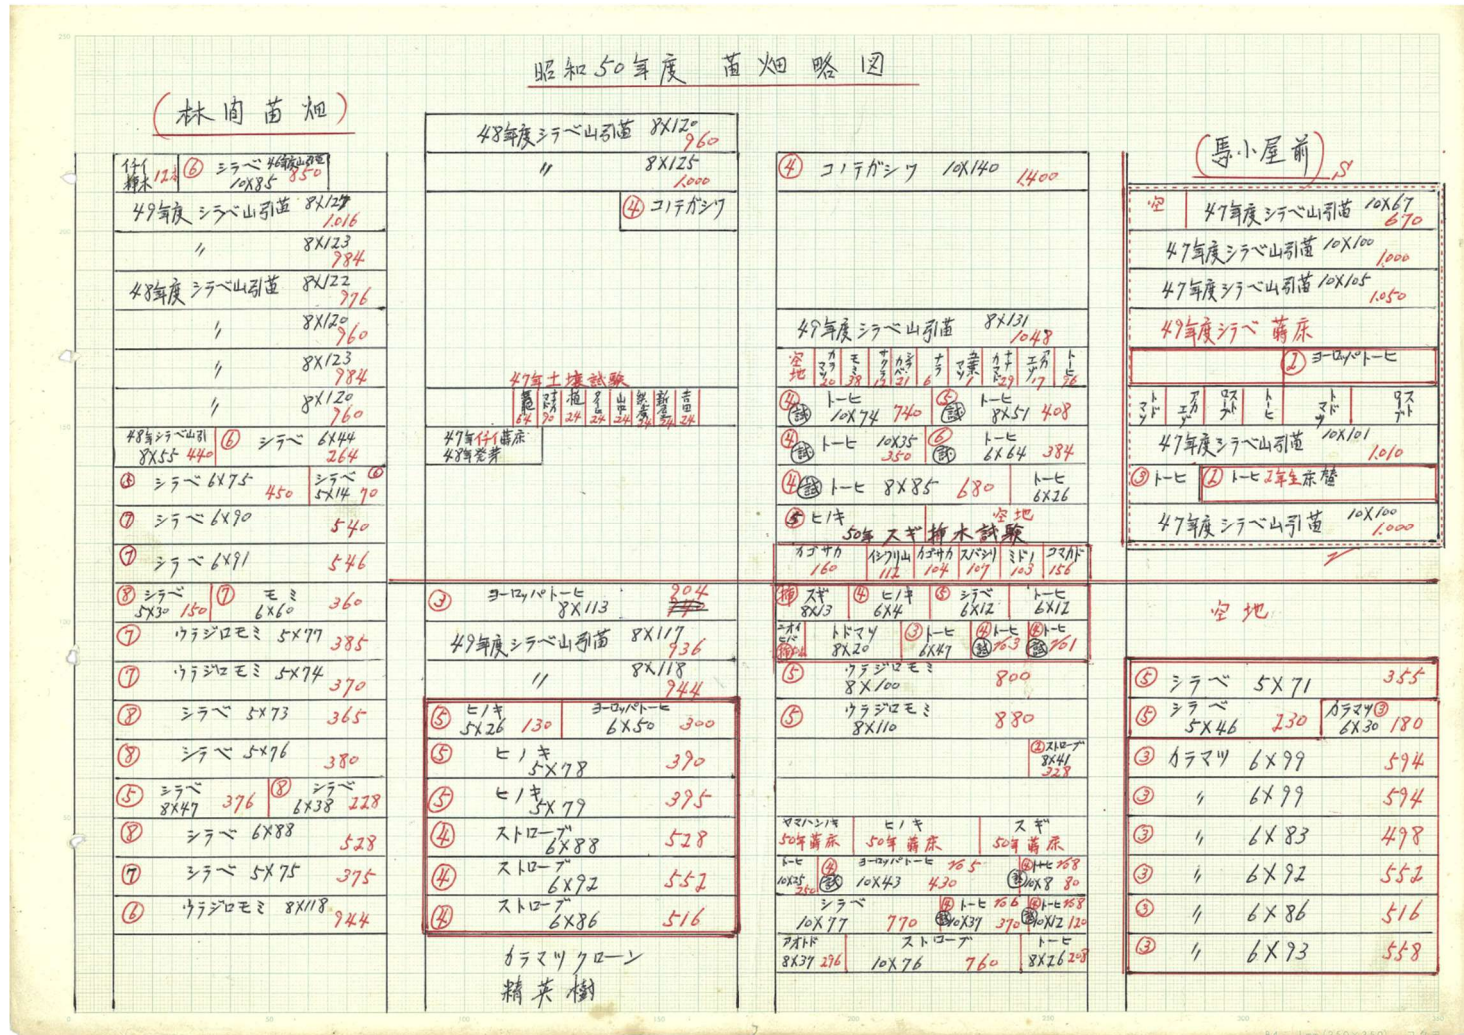 昭和50年度 苗畑略図
(林間苗畑)
イチイ 挿木 12本
⑥ シラベ 46年度山引苗
10X85 850
49年度シラベ山引苗 8X127
1.016
〃 8X123
984
48年度シラベ山引苗 8X122
976
〃 8X120
960
〃 8X123
984
〃 8X120
960
48年シラベ山引
8X55 440
⑥ シラベ 6X44
264
シラベ 6X75
450
シラベ ⑥
5X14 70
⑦ シラベ 6X90
540
⑦ シラベ 6X91
546
⑧ シラベ
5X30 150
⑦ モミ
6X60 360
⑦ ウラジロモミ 5X77
385
⑦ ウラジロモミ 5X74
370
⑧ シラベ 5X73 365
⑧ シラベ 5X76
380
⑤ シラベ
8X47 376
⑧ シラベ
6X38 228
⑧ シラベ 6X88
528
⑦ シラベ 5X75
375
⑥ ウラジロモミ 8X118
944
48年度シラベ山引苗 8X120
960
〃 8X125
1.000
④ コノテガシワ
47年土壌試験
64
90
植 24
24
山中 24
24
24
吉田 24
47年イチイ蒔床
48年発芽
③ ヨーロッパトーヒ
8X113
904
49年度シラベ山引苗 8X117
936
〃 8X118
944
⑤ ヒノキ
5X26 130
ヨーロッパトーヒ
6X50 300
⑤ ヒノキ
5X78 390
⑤ ヒノキ
5X79 395
④ ストローブ
6X88 528
④ ストローブ
6X92 552
④ ストローブ
6X86 516
カラマツクローン
精英樹
④ コノテガシワ 10X140 1.400
49年度シラベ山引苗 8X131
1048
空地
カラマツ 20
モミ 38
サワラ 12
シラベ 21
ナラ 6
1
29
17
トーヒ 96
④ 試 トーヒ
10X74 740
⑤ 試 トーヒ
8X51 408
④ 試 トーヒ 10X35
350
⑥ 試 トーヒ
6X64 384
④ 試 トーヒ 8X85 680
トーヒ
6X26
⑤ ヒノキ
空地
50年スギ挿木試験
カゴサカ
160
イシワリ山
112
カゴサカ
104
スバシリ
107
ミドノ
103
コマカド
156
挿 スギ
8X13
④ ヒノキ
6X4
⑤ シラベ
6X12
トーヒ
6X12
ニオイヒバ
トドマツ
8X20
③ トーヒ
6X47
④ トーヒ
試 No3
④ トーヒ
試 No1
⑤ ウラジロモミ
8X100 800
⑤ ウラジロモミ
8X110 880
② ストローブ
8X41
328
ヤマハンノキ
50年蒔床
ヒノキ
50年蒔床
スギ
50年蒔床
トーヒ
10X25
250
④ 試 ヨーロッパトーヒ No5
10X43 430
④ 試 トーヒ No8
10X8 80
シラベ
10X77 770
④ 試 トーヒ No6
10X37 370
④ 試 トーヒ No8
10X12 120
アオトド
8X37 296
ストローブ
10X76 760
トーヒ
8X26 208
(馬小屋前)
S
空
47年度シラベ山引苗 10X67
670
47年度シラベ山引苗 10X100
1.000
47年度シラベ山引苗 10X105
1.050
49年度シラベ 蒔床
② ヨーロッパトーヒ
トドマツ
アカエゾ
ストローブ
トーヒ
トドマツ
ストローブ
47年度シラベ山引苗 10X101
1.010
③ トーヒ
② トーヒ2年生床替
47年度シラベ山引苗 10X100
1.000
空地
⑤ シラベ 5X71 355
⑤ シラベ
5X46 230
カラマツ③
6X30 180
③ カラマツ 6X99 594
③ 〃 6X99 594
③ 〃 6X83 498
③ 〃 6X92 552
③ 〃 6X86 516
③ 〃 6X93 558